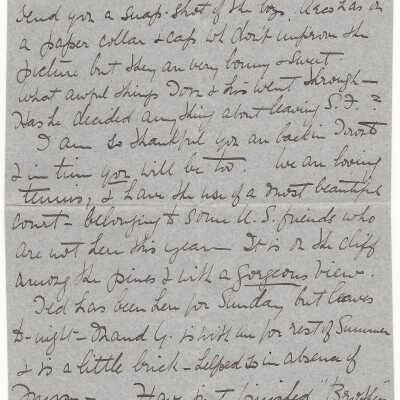 send you a snap-shot of the boys. has on
a paper collar & caps wh don't improve the
picture but they are very bonny & sweet.
What awful things Tom & his went through—
Has he decided anything about leaving S.F.?
I am so thankful you are back in
& in time you will be too. We are loving
tennis, & I have the use of a most beautiful
court— belonging to some U.S. friends who
are not here this year— It is on the cliff
among the pines & with a gorgeous view.
Ted has been here for Sunday but leaves
to-night— & G. is with me for rest of Summer
& is a little brick— helped us in absence of
Have just finished